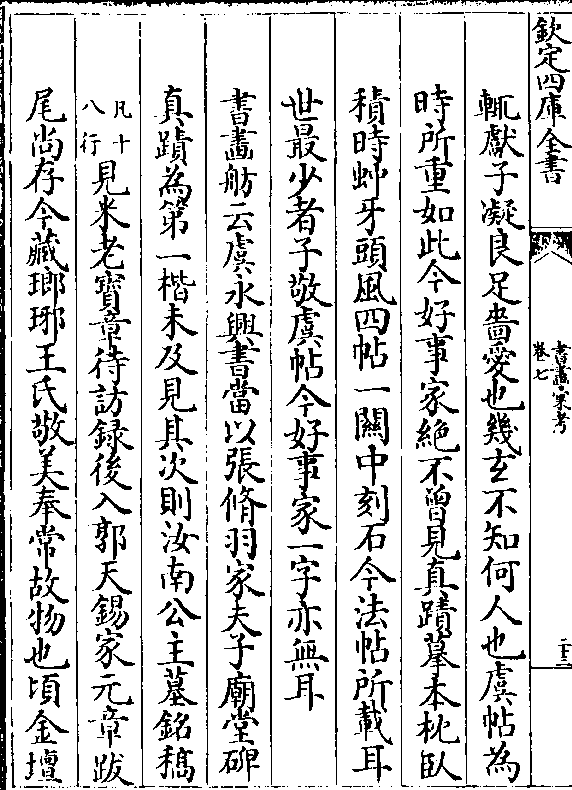 欽定四庫全書
書畫彙考
卷七
二十三
輒獻子凝良足嗇愛也幾玄不知何人也虞帖為
時所重如此今好事家絶不曾見真蹟摹本枕臥
積時艸牙頭風四帖一關中刻石今法帖所載耳
世最少者子敬虞帖今好事家一字亦無耳
書畫舫云虞永興書當以張脩羽家夫子廟堂碑
真蹟為第一楷未及見其次則汝南公主墓銘稿
凡十
八行
見米老寶章待訪録後入郭天錫家元章跋
尾尚存今藏瑯琊王氏敬美奉常故物也頃金壇